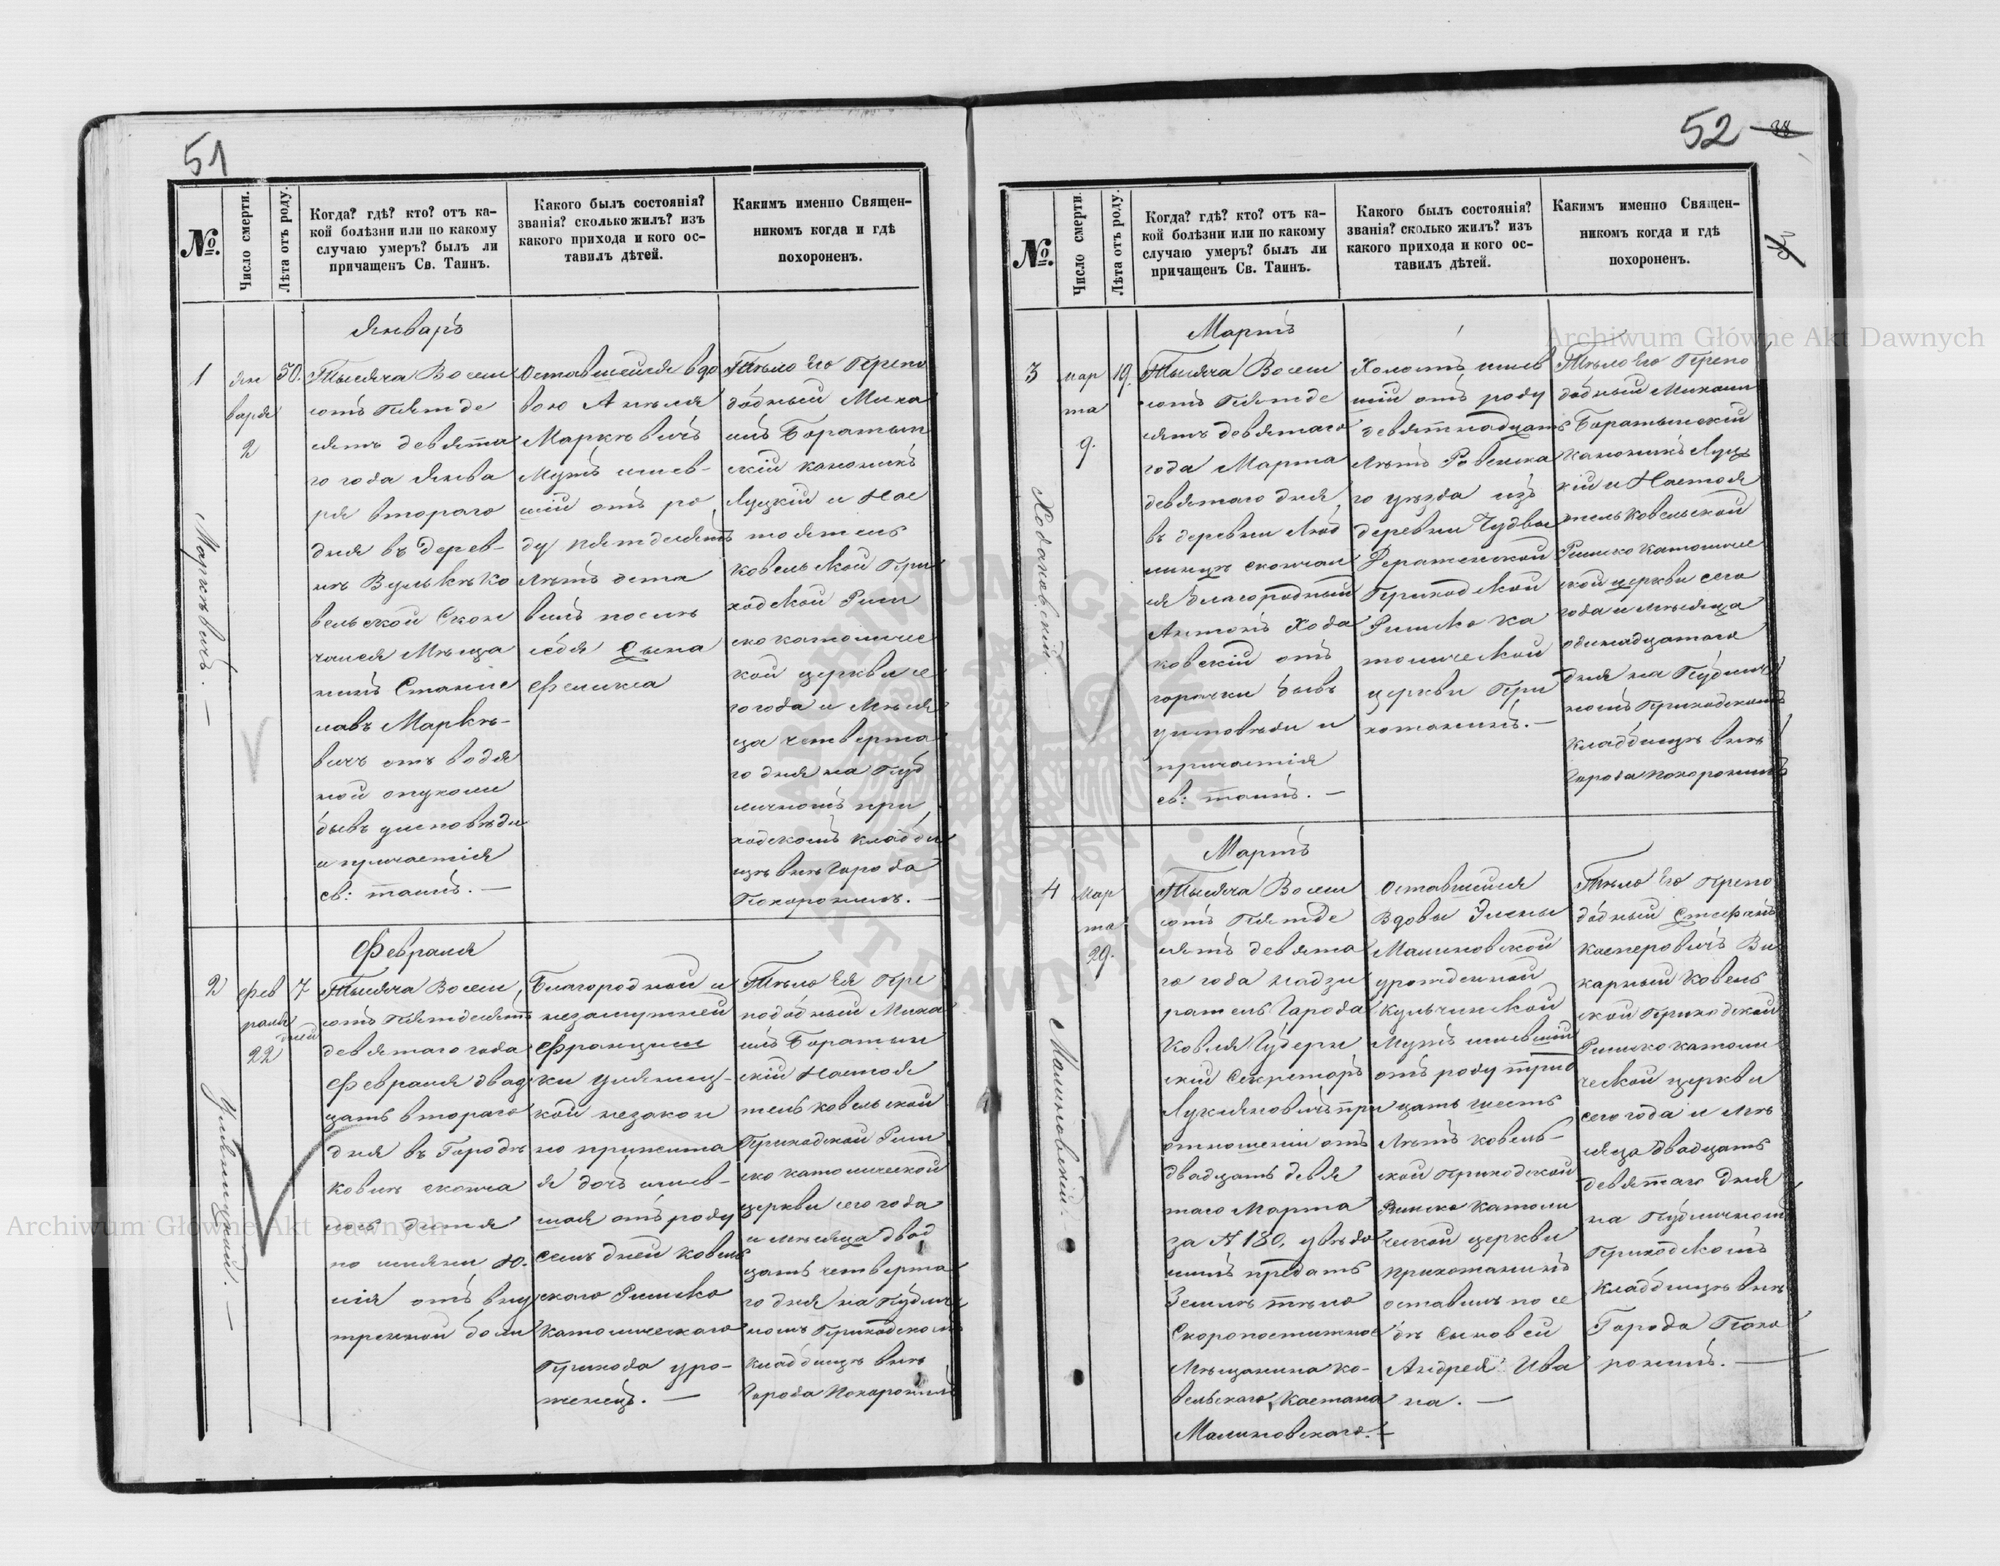 51
№.
Число смерти.
Лѣта отъ роду.
Когда? гдѣ? кто? отъ ка-
кой болѣзни или по какому
случаю умеръ? былъ ли
причащенъ Св. Таинъ.
Какого былъ состоянія?
званія? сколько жилъ? изъ
какого прихода и кого ос-
тавилъ дѣтей.
Какимъ именно Священ-
никомъ когда и гдѣ
похороненъ.
1
Ян
варя
2
50.
Маркѣвичъ. —
Январь
Тысяча Восем
сотъ Пятьде
сятъ девята
го года Янва
ря втораго
дня въ дерев-
нѣ Вулькѣ Ко
вельской Скон
чался Мѣща
нинъ Станис
лавъ Маркѣ-
вичъ отъ водя
ной опухоли
бывъ уисповѣди
и причастія
св: таинъ. —
Оставшейся вдо
вою Анѣля
Маркѣвичъ
Мужъ имев-
шій отъ ро
ду пятдесятъ
лѣтъ оста
вилъ послѣ
себя Сына
Феликса
Тѣло Его Препо
добный Миха
илъ Боратын
скій каноникъ
Луцкій и Нас
тоятель
Ковельской При
ходской Рим
ско католичес
кой церкви се
го года и Мѣся
ца четверта
го дня на Пуб
личномъ при
ходскомъ кладби
щѣ внѣ Города
Похоронилъ. —
2
Фев
раля
22
7
дней
Улѣницкий. —
Февраля
Тысяча Восем,
сотъ Пятдесятъ
девятаго года
Февраля двад
цать втораго
дня въ Городѣ
Ковлѣ сконча
лось дитя
по имяни Ю.
лія отъ вну
тренной боли
Благородной и
незамужней
Францыш
ки Уляниц-
кой незакон
но прижита
я дочь имев-
шая отъ роду
семь дней Ковель
скаго Римско
католическаго
Прихода уро-
женецъ. —
Тѣло Ея Пре
подобный Миха
илъ Боратын
скій Настоя
тель ковельской
Приходской Рим
ско католической
церкви сего года
и мѣсяца двад
цать четверта
го дня на Публич
номъ Приходскомъ
кладбищѣ внѣ
Города Похоронилъ
52
38
№.
Число смерти.
Лѣта отъ роду.
Когда? гдѣ? кто? отъ ка-
кой болѣзни или по какому
случаю умеръ? былъ ли
причащенъ Св. Таинъ.
Какого былъ состоянія?
званія? сколько жилъ? изъ
какого прихода и кого ос-
тавилъ дѣтей.
Какимъ именно Священ-
никомъ когда и гдѣ
похороненъ.
3
мар
та
9.
19.
Ходаковскій.
Мартъ
Тысяча Восем
сотъ Пятьде
сятъ девятаго
года Марта
девятаго дня
въ деревни Люб
линцѣ скончал
ся Благородный
Антонъ Хода
ковскій отъ
горячки бывъ
уисповѣди и
причастія
св: таинъ. —
Холостъ имев
шій отъ роду
девятнадцать
лѣтъ Ровенска
го уѣзда изъ
деревни Чудвы
Деражненской
Приходской
Римско ка
толической
церкви При
хожанинъ. —
Тѣло Его Препо
добный Михаил
Боратынскій
Каноникъ Луц
кій и Настоя
тель Ковельской
Римско Католичес
кой церкви сего
года и мѣсяца
одинадцатого
дня на Публич
номъ Приходскомъ
Кладбищѣ внѣ
Города похоронилъ
4
Мар
та
29.
Малиновскій.
Мартъ
Тысяча Восем
сотъ Пятьде
сятъ девята
го года надзи
ратель Города
Ковля Губерн
скій Секретарь
Лукяновичъ при
отношеніи отъ
двадцать девя
таго Марта
за N 180, увѣдо
милъ предать
Землѣ тѣло
Скоропостижно
Мѣщанина Ко-
вельскаго, Каетана
Малиновскаго. —
Оставшейся
Вдовы Элены
Малиновской
урожденной
Кульчинской
Мужъ имевшій
отъ роду трид
цать шесть
лѣтъ ковель-
ской Приходской
Римско Католи
ческой церкви
прихожанинъ
оставилъ по се
бѣ сыновей
Андрея Ива
на. —
Тѣло Его Препо
добный Стефанъ
Касперовичъ Ви
карный Ковель
ской Приходской
Римско католи
ческой церкви
сего года и мѣ
сяца двадцать
девятаго Дня
на Публичномъ
Приходскомъ
Кладбищѣ внѣ
Города Похо
ронилъ. —
Archiwum Główne Akt Dawnych
Archiwum Główne Akt Dawnych